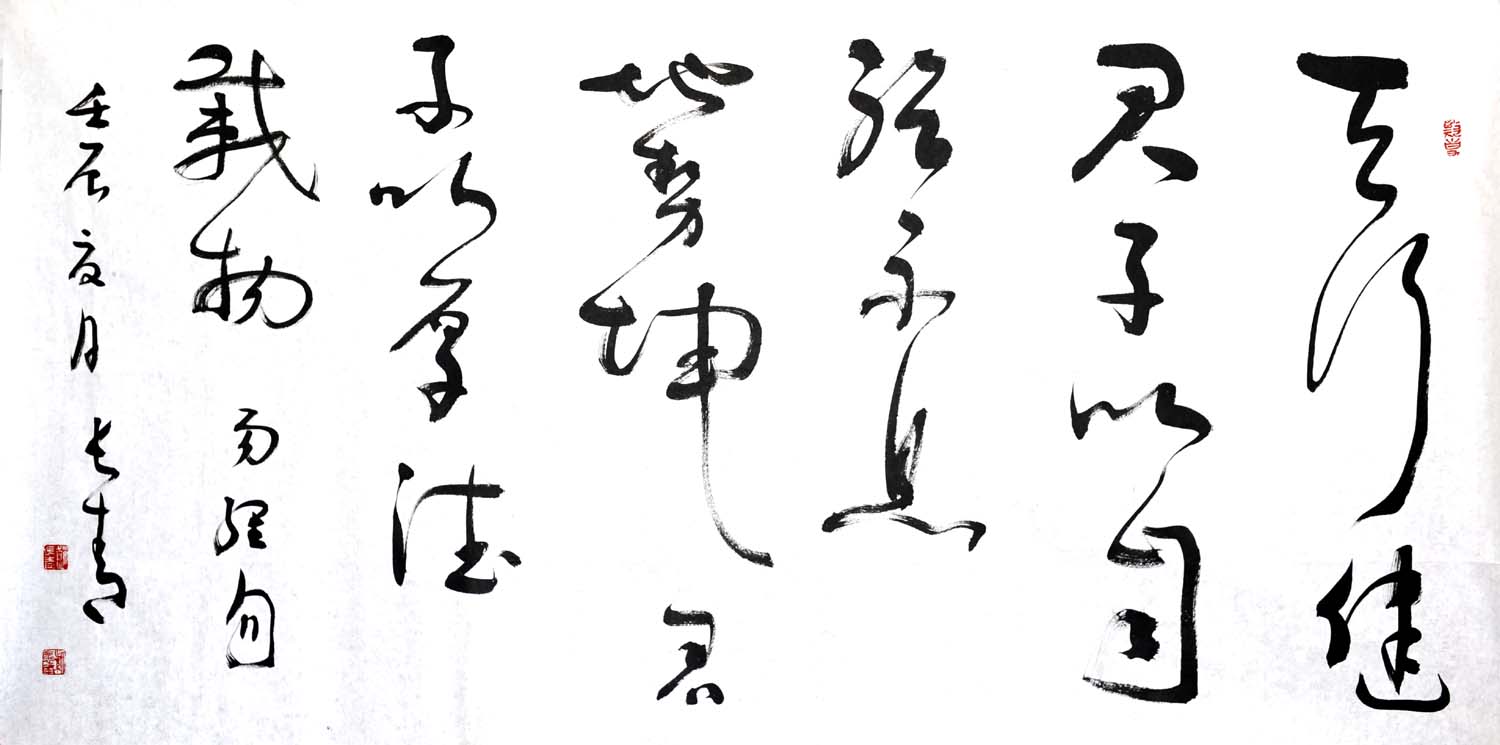 天行健
君子以自
強不息
地勢坤君
子以厚德
載物 易經句
壬辰夏月 长青